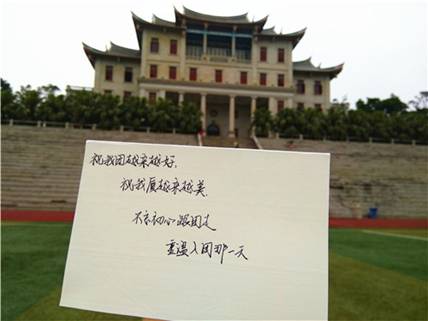 祝我团越来越好.
祝我厦越来越美.
不忘初心跟团走
重温入团那一天